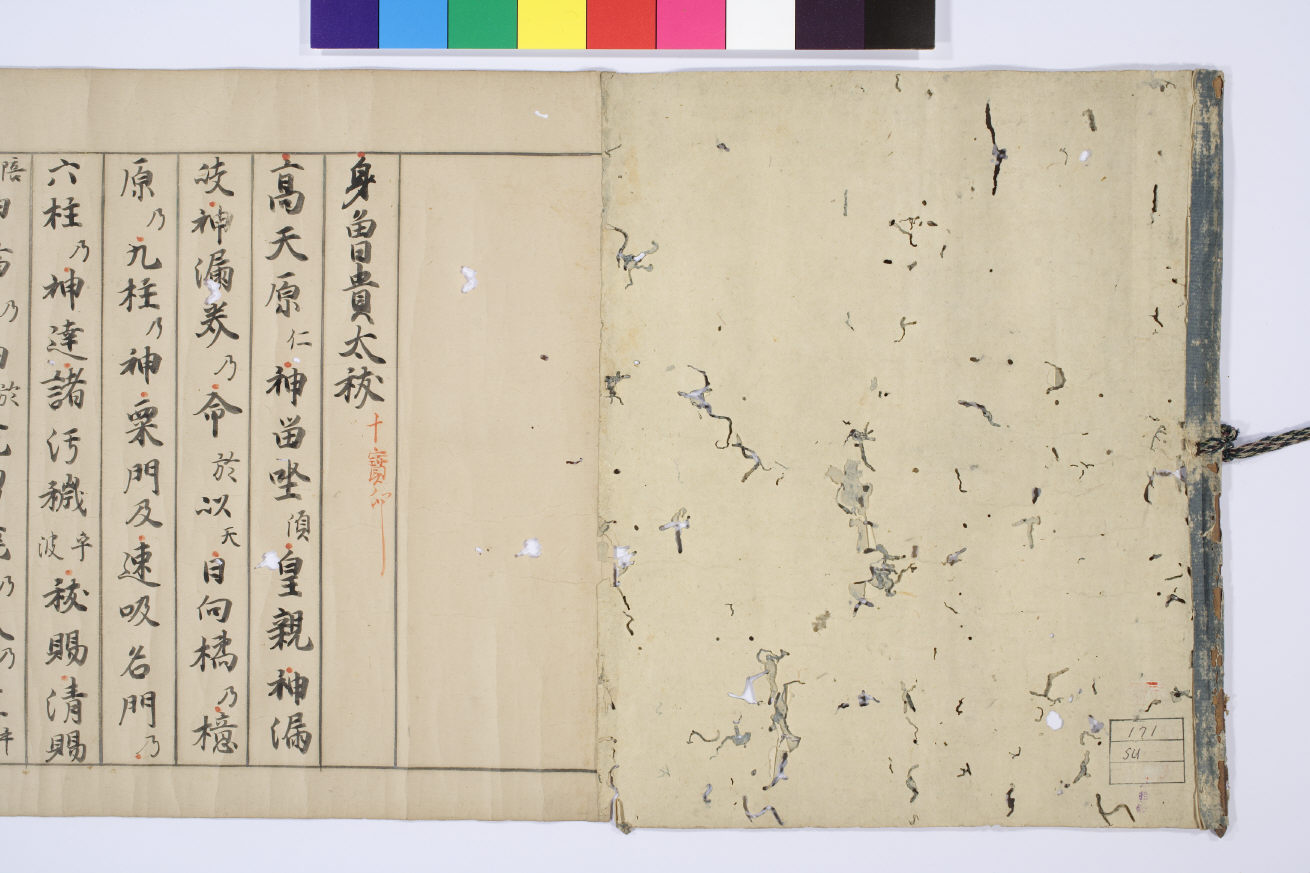 身曽貴太祓 十寳卯
高天原仁神畱坐須皇親神漏
岐神漏美乃命於以天日向橘乃檍
原乃九柱乃神粟門及速吸名門乃
六柱乃神達諸汚穢乎波祓賜清賜
171
SU